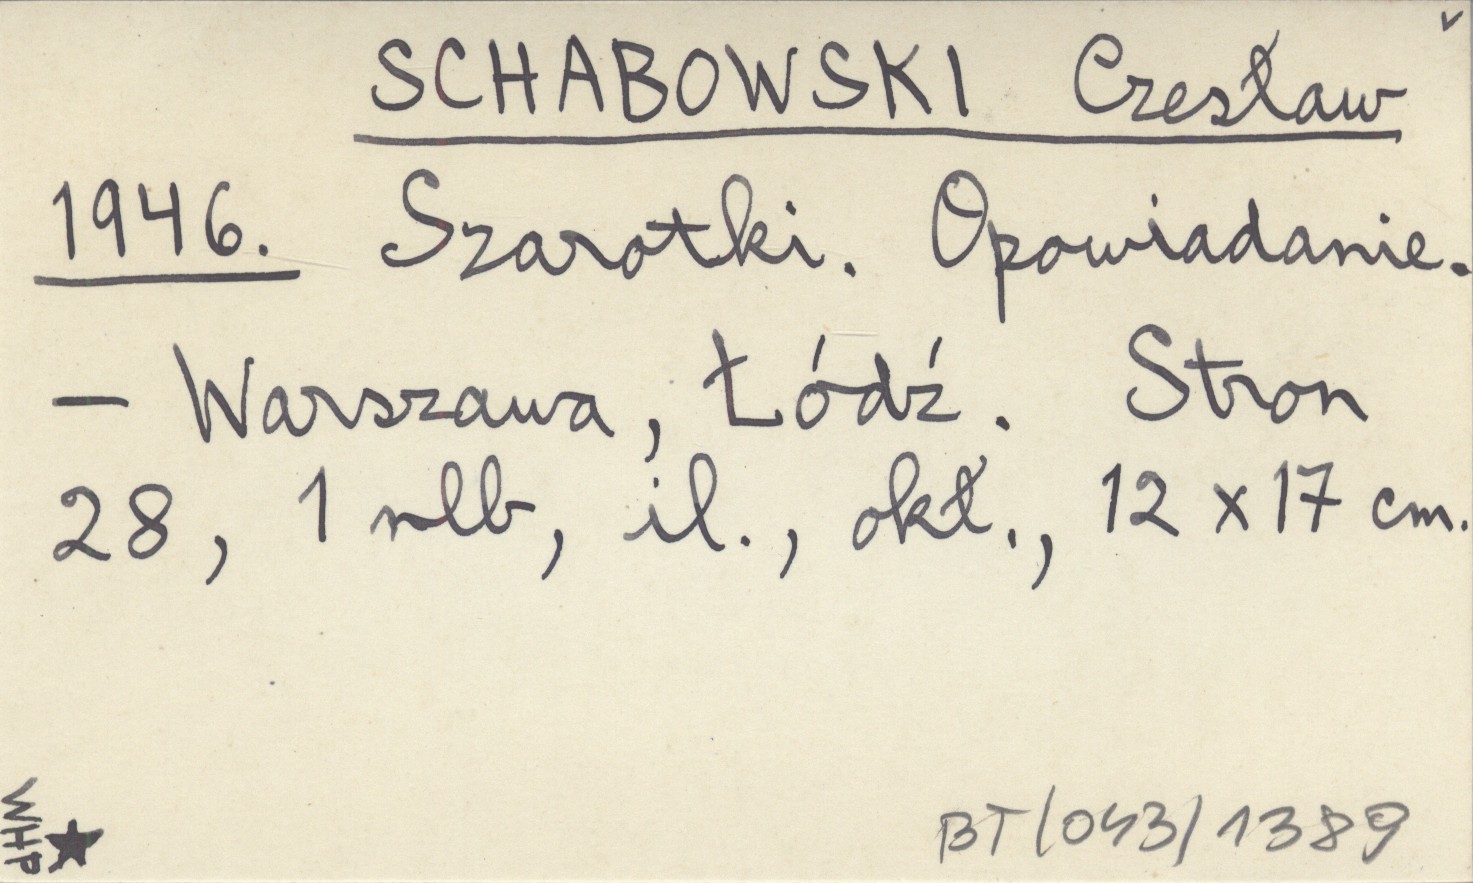 SCHABOWSKI Czesław
1946. Szarotki. Opowiadanie.
— Warszawa, Łódź. Stron
28, 1 nlb, il., okł., 12 x 17 cm.
WHP
BT/043/1389